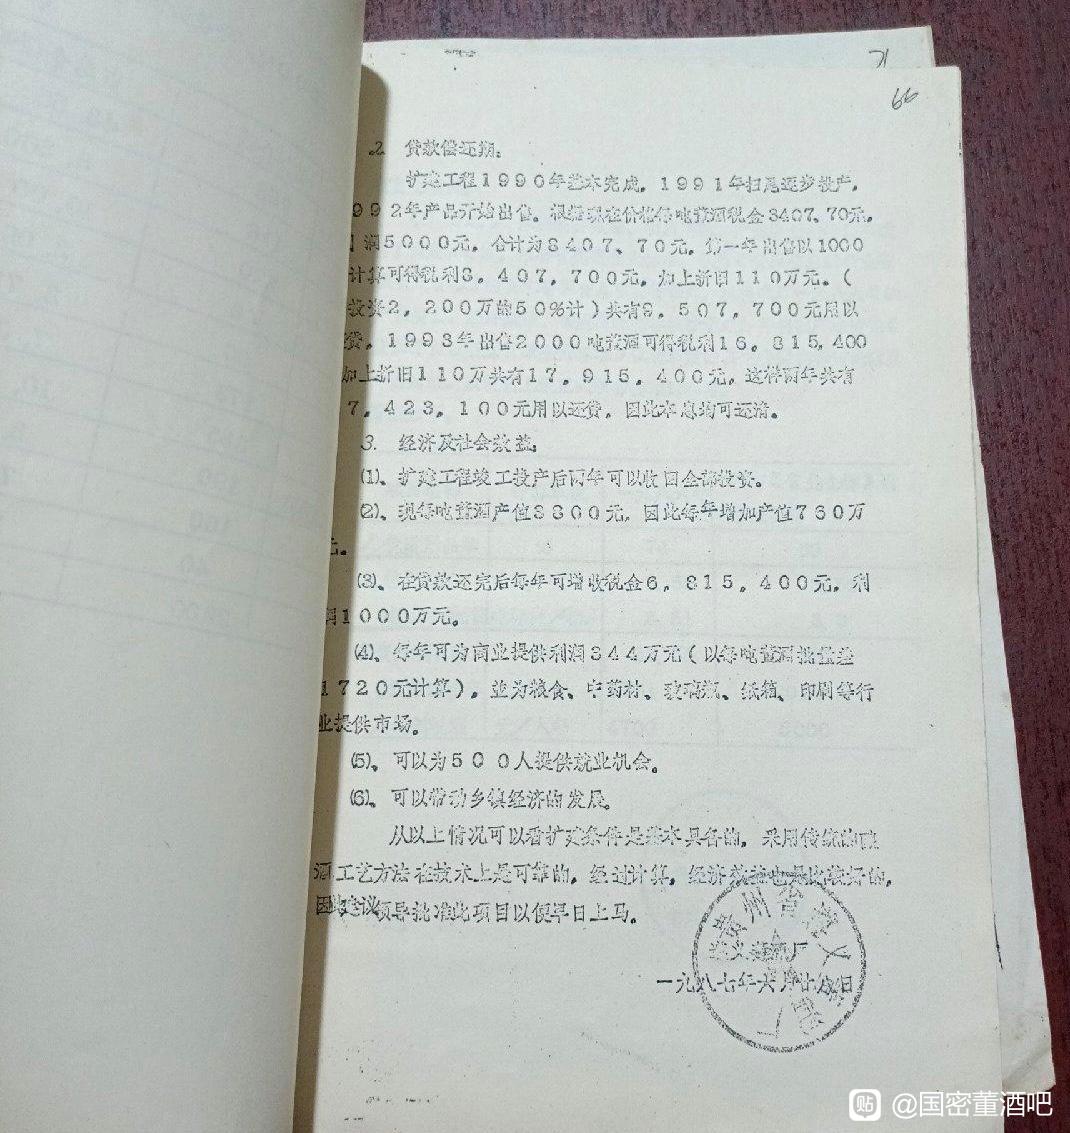 66
2. 贷款偿还期:
扩建工程1990年基本完成,1991年扫尾逐步投产,
992年产品开始出售。根据现在价格每吨董酒税金3407、70元,
润5000元,合计为8407、70元,第一年出售以1000
计算可得税利8,407,700元,加上折旧110万元。(
投资2,200万的50%计)共有9,507,700元用以
贷,1993年出售2000吨董酒可得税利16,815,400
加上折旧110万共有17,915,400元,这样两年共有
7,423,100元用以还贷,因此本息均可还清。
3. 经济及社会效益:
(1)、扩建工程竣工投产后两年可以收回全部投资。
(2)、现每吨董酒产值3800元,因此每年增加产值760万
元。
(3)、在贷款还完后每年可增收税金6,815,400元,利
润1000万元。
(4)、每年可为商业提供利润344万元(以每吨董酒批量差
1720元计算),並为粮食、中药材、玻璃瓶、纸箱、印刷等行
业提供市场。
(5)、可以为500人提供就业机会。
(6)、可以带动乡镇经济的发展。
从以上情况可以看扩建条件是基本具备的,采用传统的酿
酒工艺方法在技术上是可靠的,经过计算,经济效益也是比较好的,
因此建议领导批准此项目以便早日上马。
遵义董酒厂
一九八七年六月廿八日
贵州省遵义董酒厂
贴 @国密董酒吧